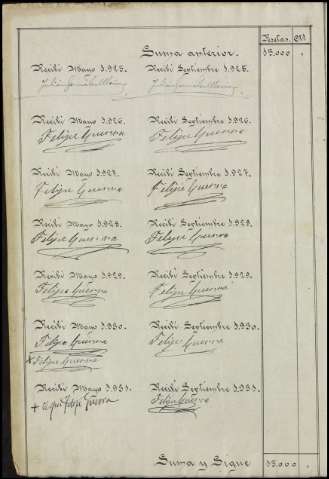 Pesetas. Cts
Suma anterior. 15.000
Recibí Mayo 1.925. Recibí Septiembre 1.925.
Recibí Mayo 1.926. Recibí Septiembre 1.926.
Felipe Guerra Felipe Guerra
Recibí Mayo 1.927. Recibí Septiembre 1.927.
Felipe Guerra Felipe Guerra
Recibí Mayo 1.928. Recibí Septiembre 1.928.
Felipe Guerra Felipe Guerra
Recibí Mayo 1.929. Recibí Septiembre 1.929.
Felipe Guerra Felipe Guerra
Recibí Mayo 1.930. Recibí Septiembre 1.930.
Felipe Guerra Felipe Guerra
Felipe Guerra
Recibí Mayo 1.931. Recibí Septiembre 1.931.
Felipe Guerra Felipe Guerra
Suma y Sigue 15.000